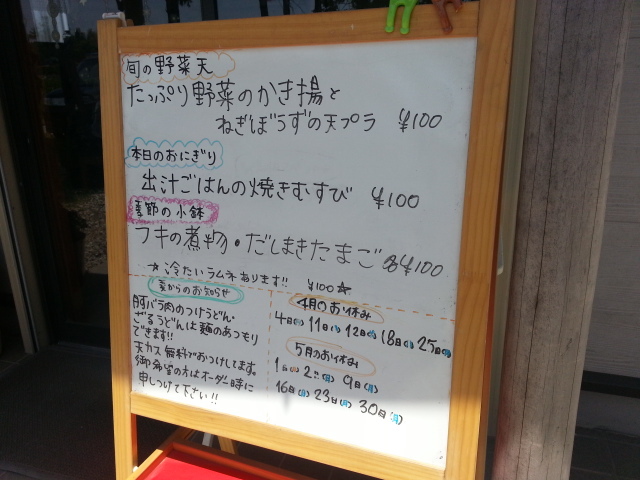 旬の野菜天
たっぷり野菜のかき揚と
ねぎぼうずの天プラ ¥100
本日のおにぎり
出汁ごはんの焼きむすび ¥100
季節の小鉢
フキの煮物・だしまきたまご 各¥100
☆冷たいラムネあります!! ¥100☆
豚バラ肉のつけうどん・
ざるうどんは麺のあつもり
できます!!
天カス無料でおつけしてます。
御希望の方はオーダー時に
申しつけて下さい!!
4月のお休み
4日 11日 12日 18日 25日
5月のお休み
1日 2日(月) 9日(月)
16日(月) 23日(月) 30日(月)